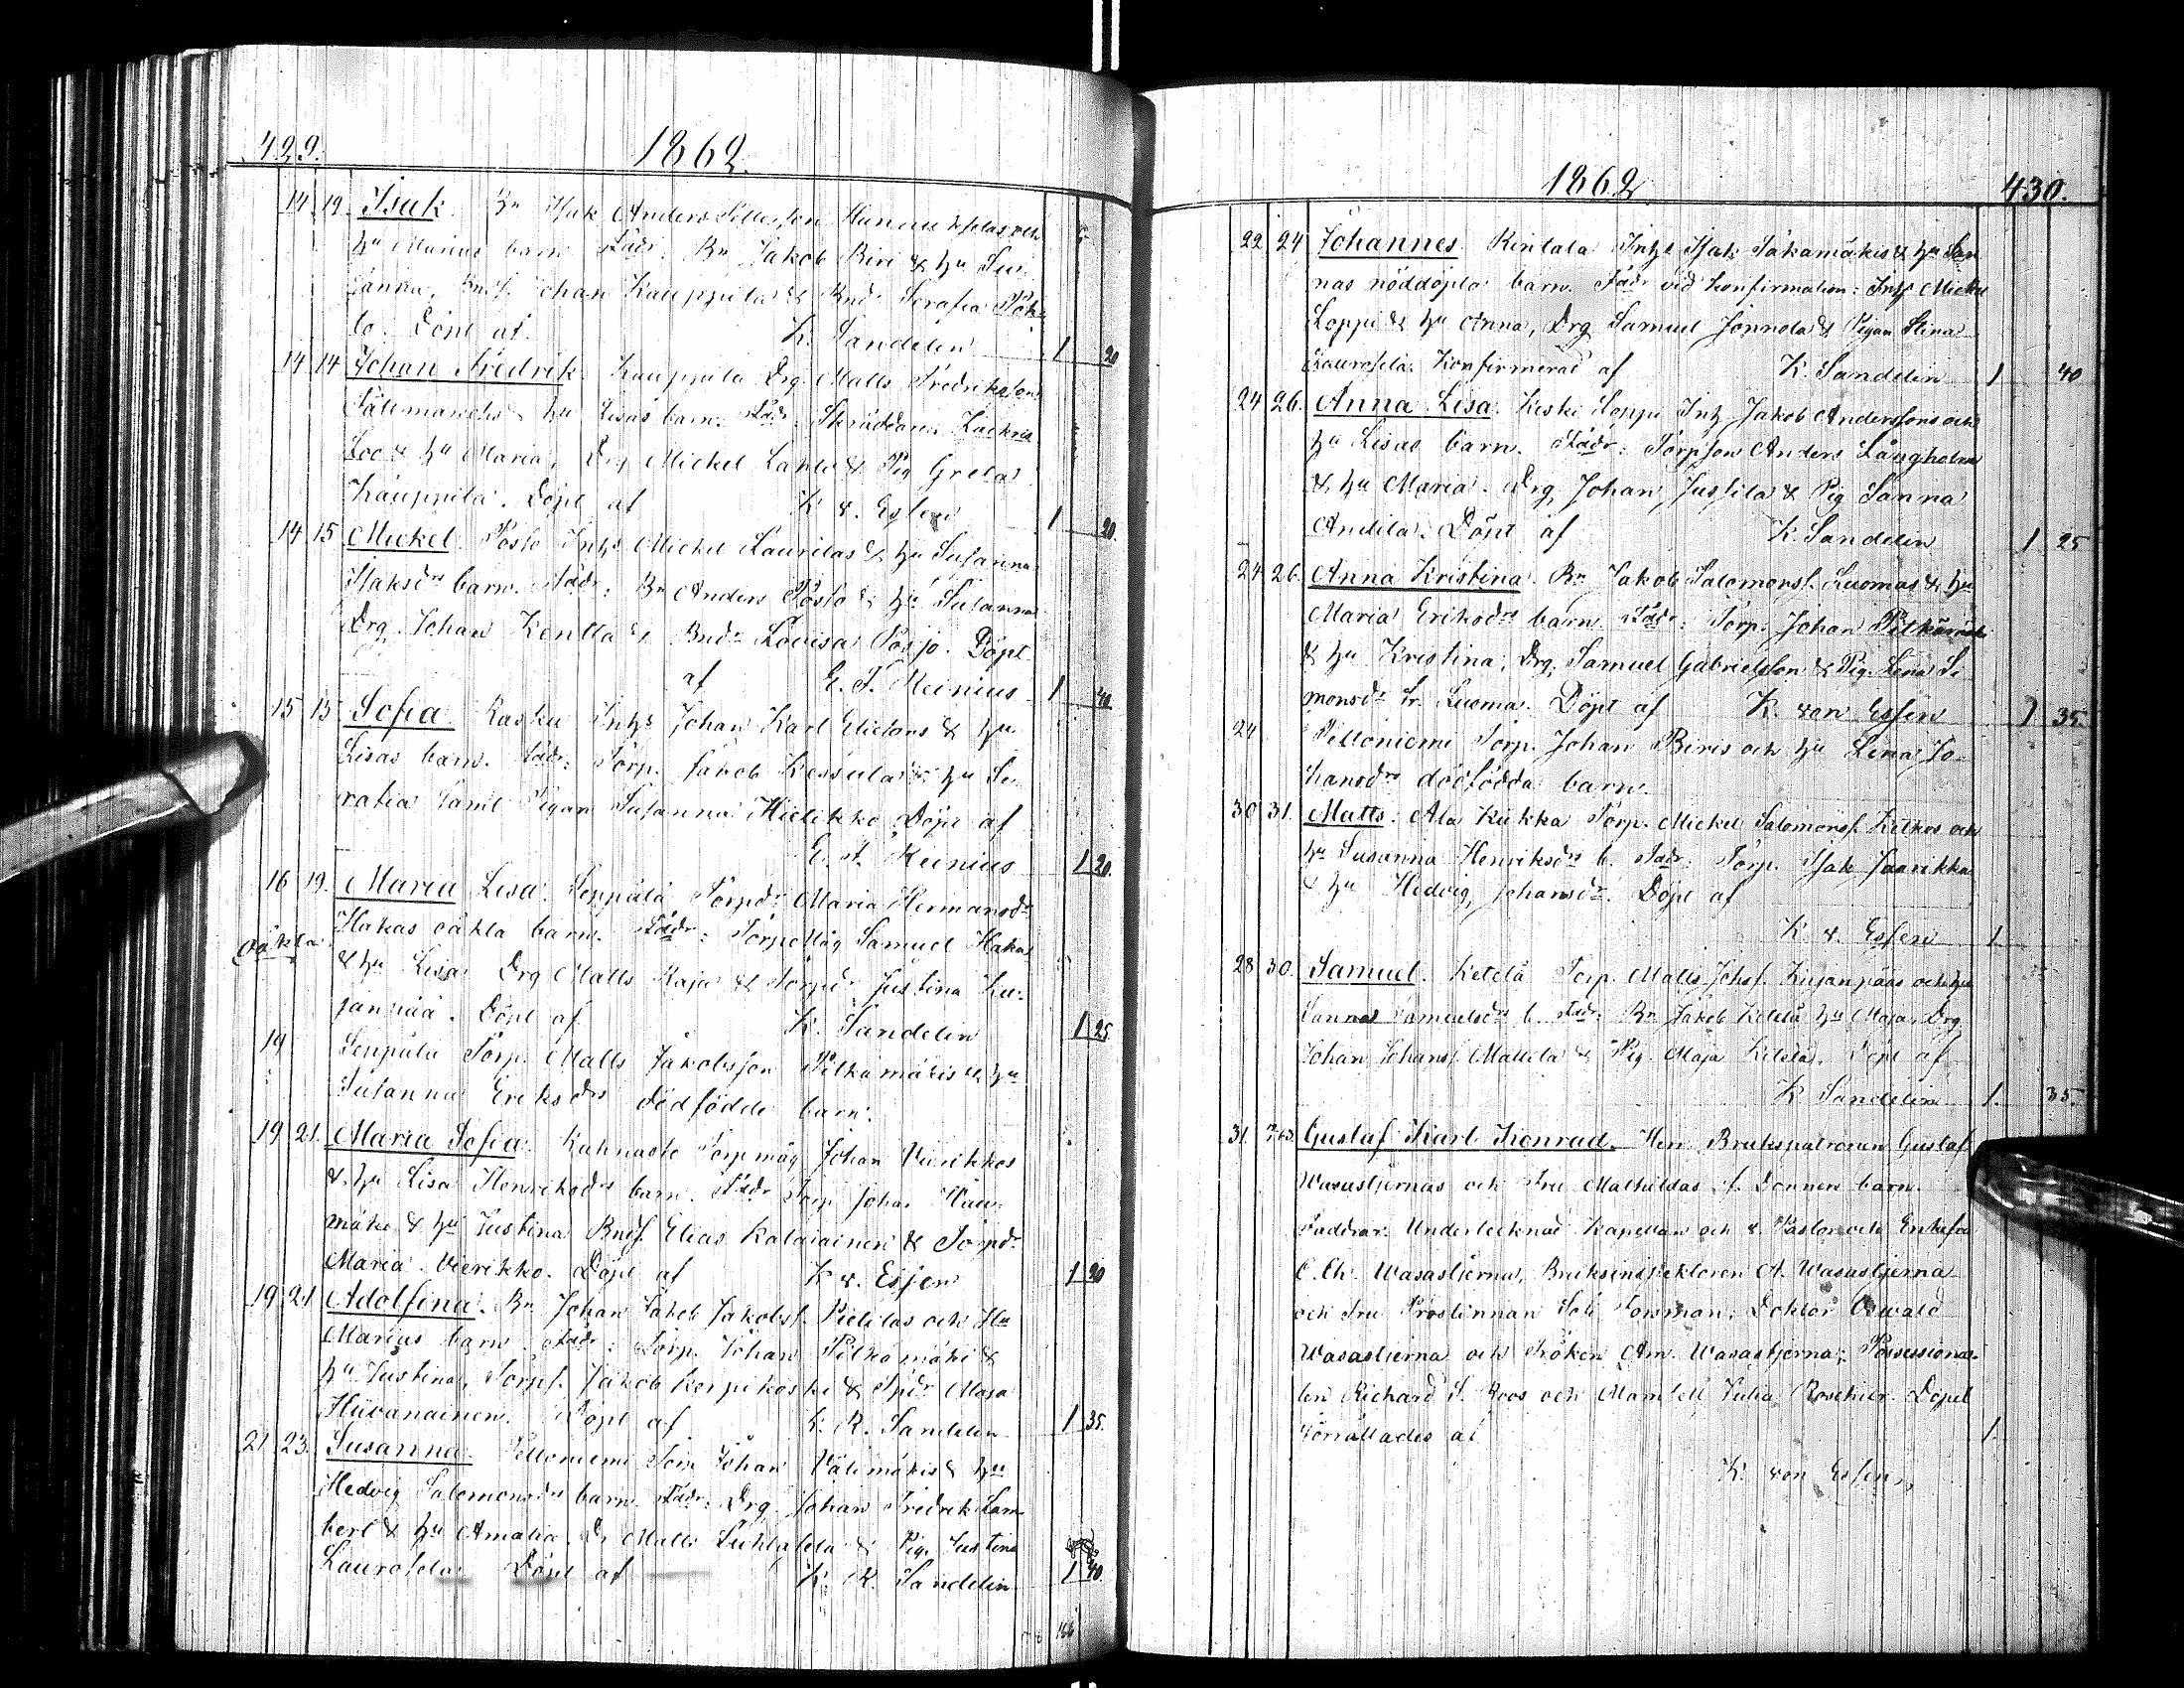 429.
1862.
14 19 Isak. Bn Isak Anders
hu Marias barn. Fadr: Bn Jakob Biri & hu Su-
sanna, Bnds. Johan Kauppila & Bndr Serafia
lo. Döpt af K. Sandelin 1 20
14 14 Johan Fredrik. Kauppila Drg. Matts Fredriksson
Välimäkis & hu Lisas barn. Fadr: Skräddaren Zackris
Loo & hu Maria, Drg Mickel Lahti & Pig Greta
Kauppila. Döpt af K. v. Essen 1 20.
14 15 Mickel. Posto Inhs Mickel Laurilas & hu Susanna
Isaksdrs barn. Fadr: Bn Anders Posto & hu Susanna
Drg. Johan Kentta & Bndr Lovisa Posjo. Döpt
af E. T. Reinius 1 40
15 15 Sofia. Rasku Inhs Johan Karl & hu
Lisas barn. Fadr: Torp. Jakob & hu Se-
rafia samt Pigan Susanna Hielikko. Döpt af
E. T. Reinius 1 20.
16 19. Maria Lisa. Seppälä Torpdr Maria Hermansdr
Oäkta Hakas oäkta barn. Fadr: Torpmåg Samuel Haka
& hu Lisa. Drg Matts Raja & Torpdr Justina Ku-
janpää. Döpt af K. Sandelin 1 25
19 Seppälä Torp. Matts Jakobsson Pitkämäkis & hu
Susanna Eriksdrs dödfödde barn.
19 21. Maria Sofia. Torpmåg Johan Vierikkos
& hu Lisa Henriksdrs barn. Fadr Torp Johan
mäki & hu Justina Bnds. Elias Kalaiainen & Torpdr
Maria Vierikko. Döpt af K v. Essen 1 20
19 21 Adolfina. Bn Johan Jakob Jakobss. Pietilas och Hu
Marias barn. Fadr: Torp. Johan Pitkämäki &
hu Justina, Torps. Jakob Korpikoski & Tpdr Maja
Hiivanainen. Döpt af K. R. Sandelin 1 35.
21 23. Susanna. Peltoniemi Torp Johan Välimäkis & hu
Hedvig Salomonsdrs barn. Fadr: Drg Johan Fredrik Lam-
bert & hu Amalia. Dr Matts & Pig. Justina
Laurosela Döpt af K. R. Sandelin 1 40.
166
1862
430.
22 24 Johannes. Rintala Inhs Isak & hu San
nas nöddöpta barn. Fadr vid konfirmation: Inhs Mickel
Loppi & hu Anna, Drg Samuel Jonnola & Pigan Stina
Laurosela. Konfirmerad af K. Sandelin 1 40
24 26. Anna Lisa. Keski Loppi Inh Jakob Anderssons och
hu Lisas barn. Fadr: Torpson Anders Långholm
& hu Maria. Drg Johan Jussila & Pig Sanna
Andila. Döpt af K. Sandelin 1 25
24 26. Anna Kristina. Bn Jakob Salomonss. Luomas & hu
Maria Eriksdrs barn. Fadr: Torp. Johan Pitkämäki
& hu Kristina, Drg. Samuel Gabrielsson & Pig. Lena Si-
monsdr fr. Luoma. Döpt af K. von Essen 1 35
24 Peltoniemi Torp. Johan Biris och hu Lena Jo-
hansdrs dödfödda barn.
30 31. Matts. Ala Kukka Torp. Mickel Salomonss. Ketkos och
hu Susanna Henriksdrs b. Fadr: Torp. Isak Jaarikka
& hu Hedvig Johansdr. Döpt af
K v. Essen 1
28 30. Samuel. Ketelä Torp. Matts Johss. Kujanpääs och hu
Sannas Samuelsdrs b. Fadr: Bn Jakob Ketelä hu Maja, Drg
Johan Johanss. Mattila & Pig. Maja Ketelä. Döpt af
K Sandelin 1. 35.
31. Gustaf Karl Konrad. Herr Brukspatronen Gustaf
Wasastjernas och Fru Mathildas f. Donner barn.
Faddrar: Undertecknad Kapellan och v. Pastor och Enkefru
C. Ch. Wasastjerna, Bruksinspektoren A. Wasastjerna
och Fru Prostinnan Forsman, Doktor Oswald
Wasastjerna och Fröken Am. Wasastjerna, Possessiona-
ten Richard S. Roos och Mamsell Julia Roschier. Döpet
förrättades af 1.
K. von Essen